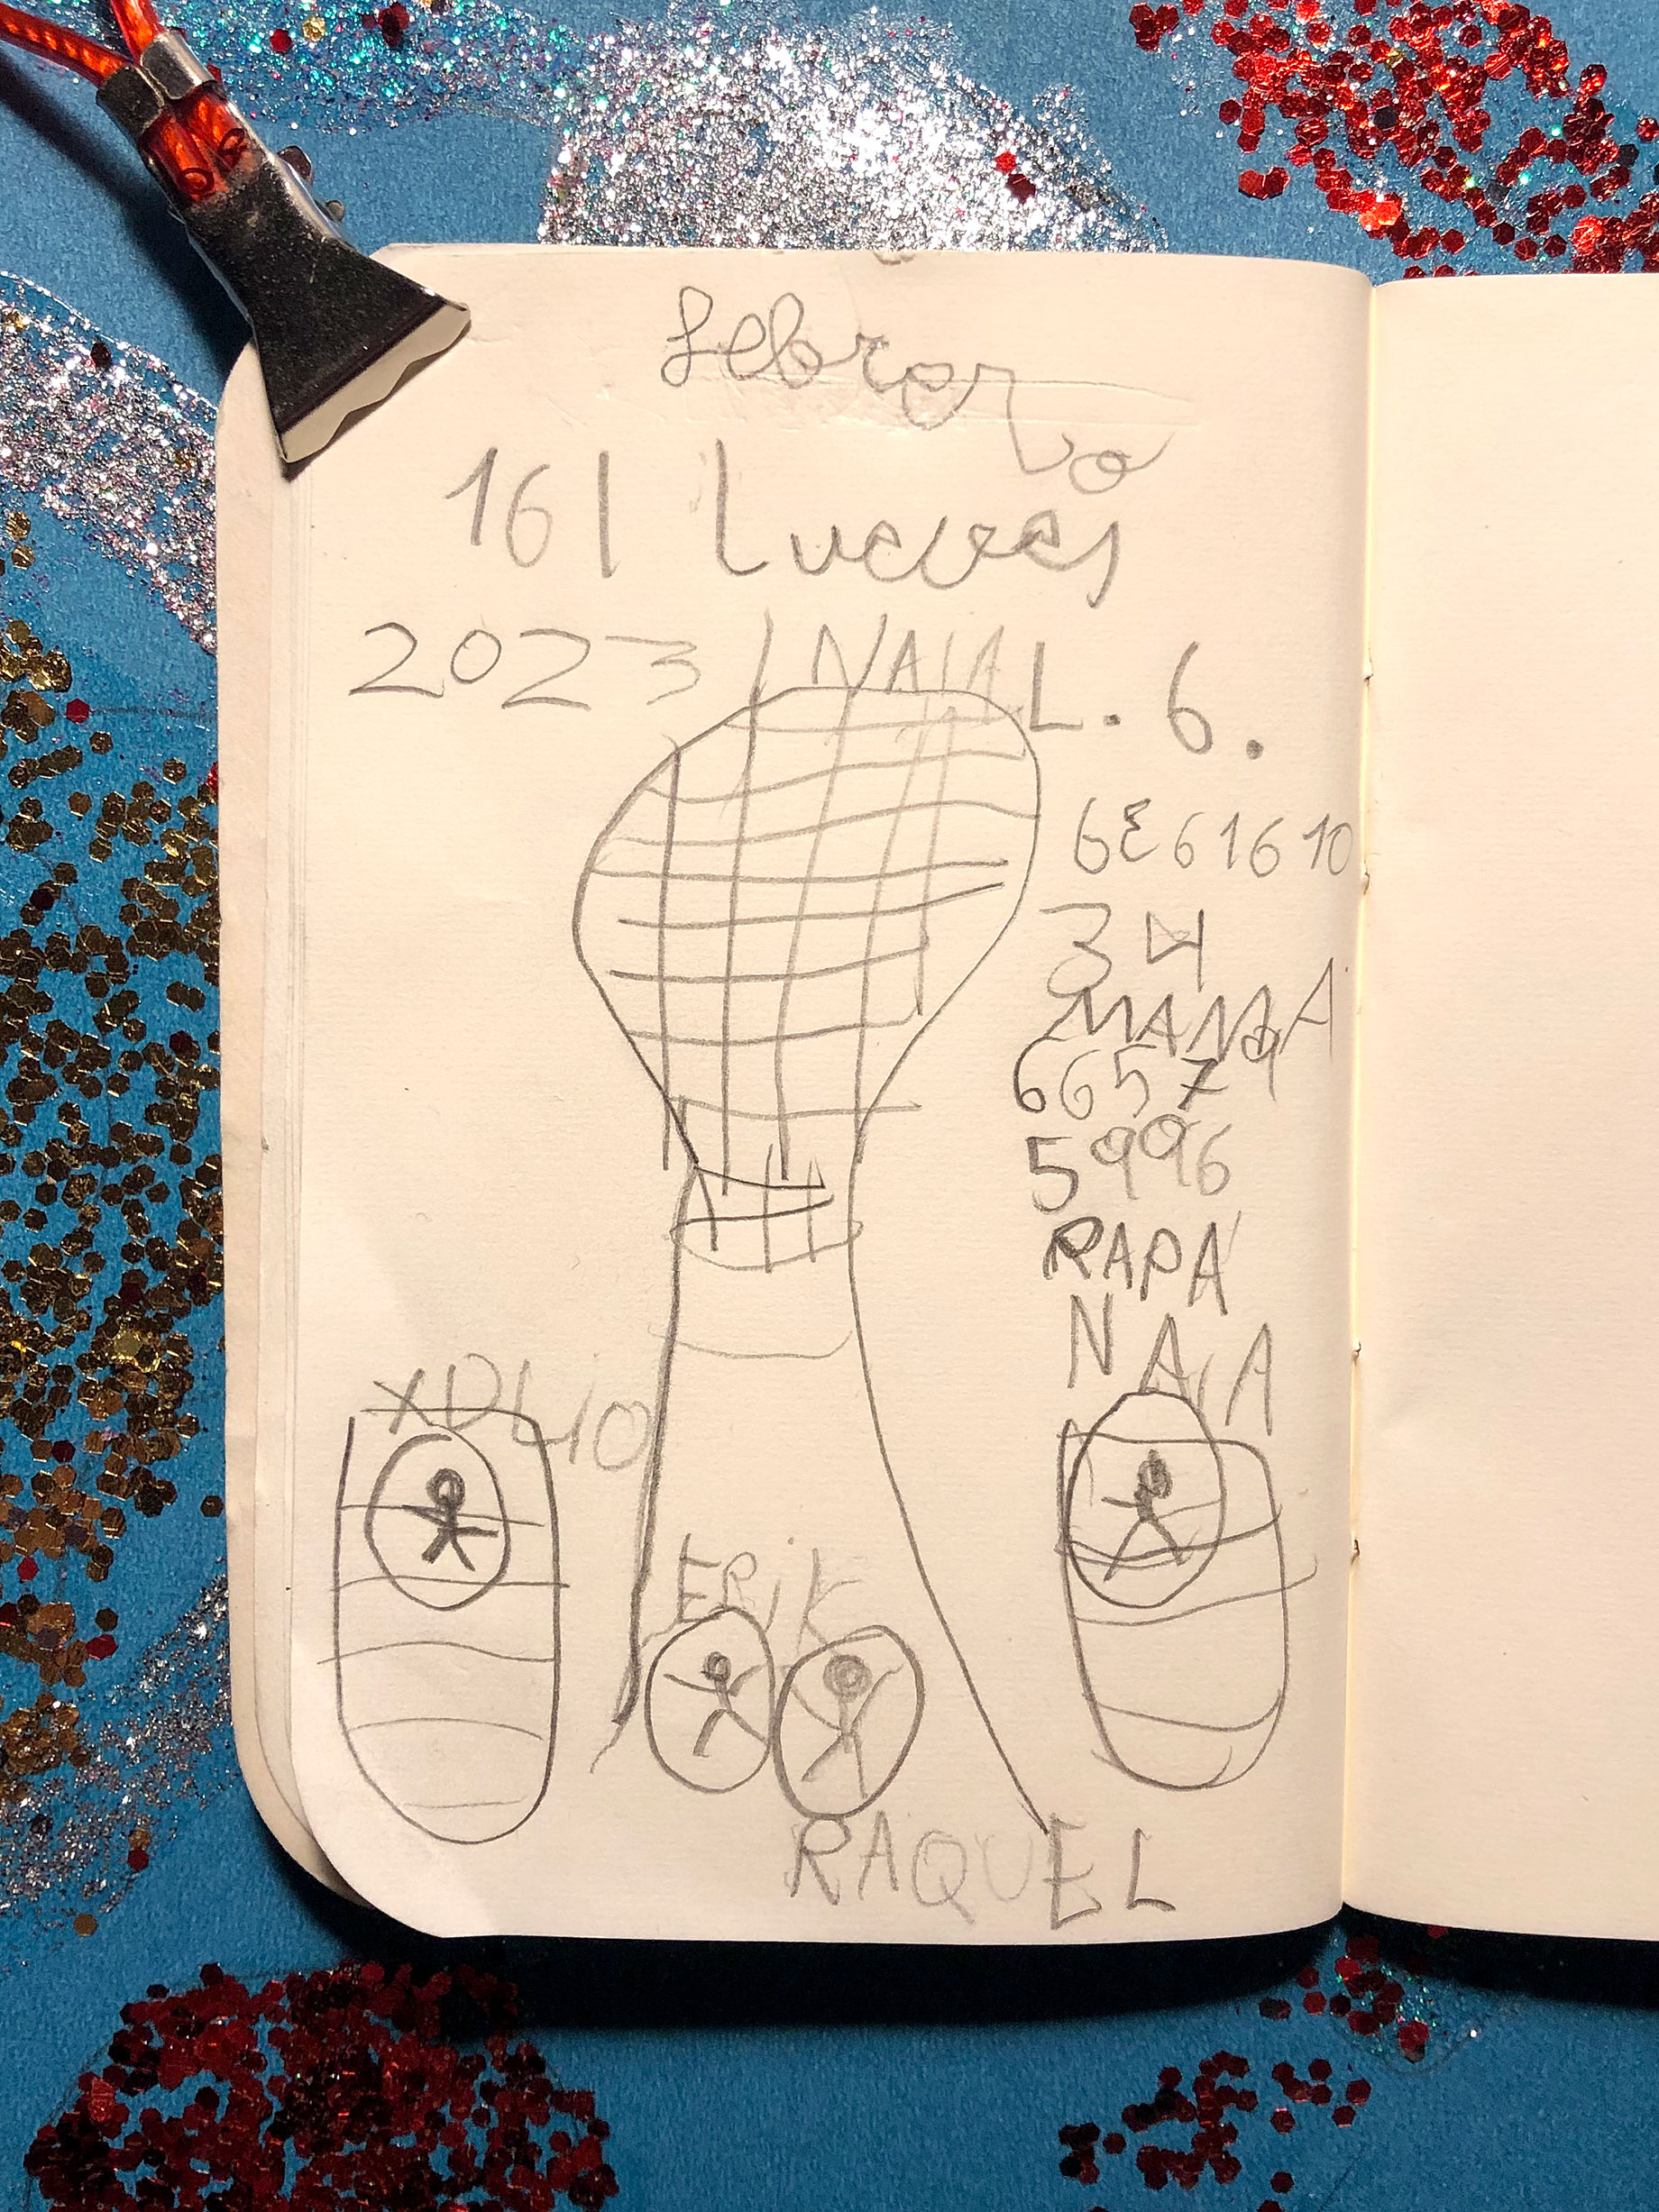 febrero
16| Lueves
2023 | NAIA L. 6.
6 6 1 6 10
34
MAMA
6657
5996
PAPA
NAIA
XDLiO
ERiK
RAQUEL